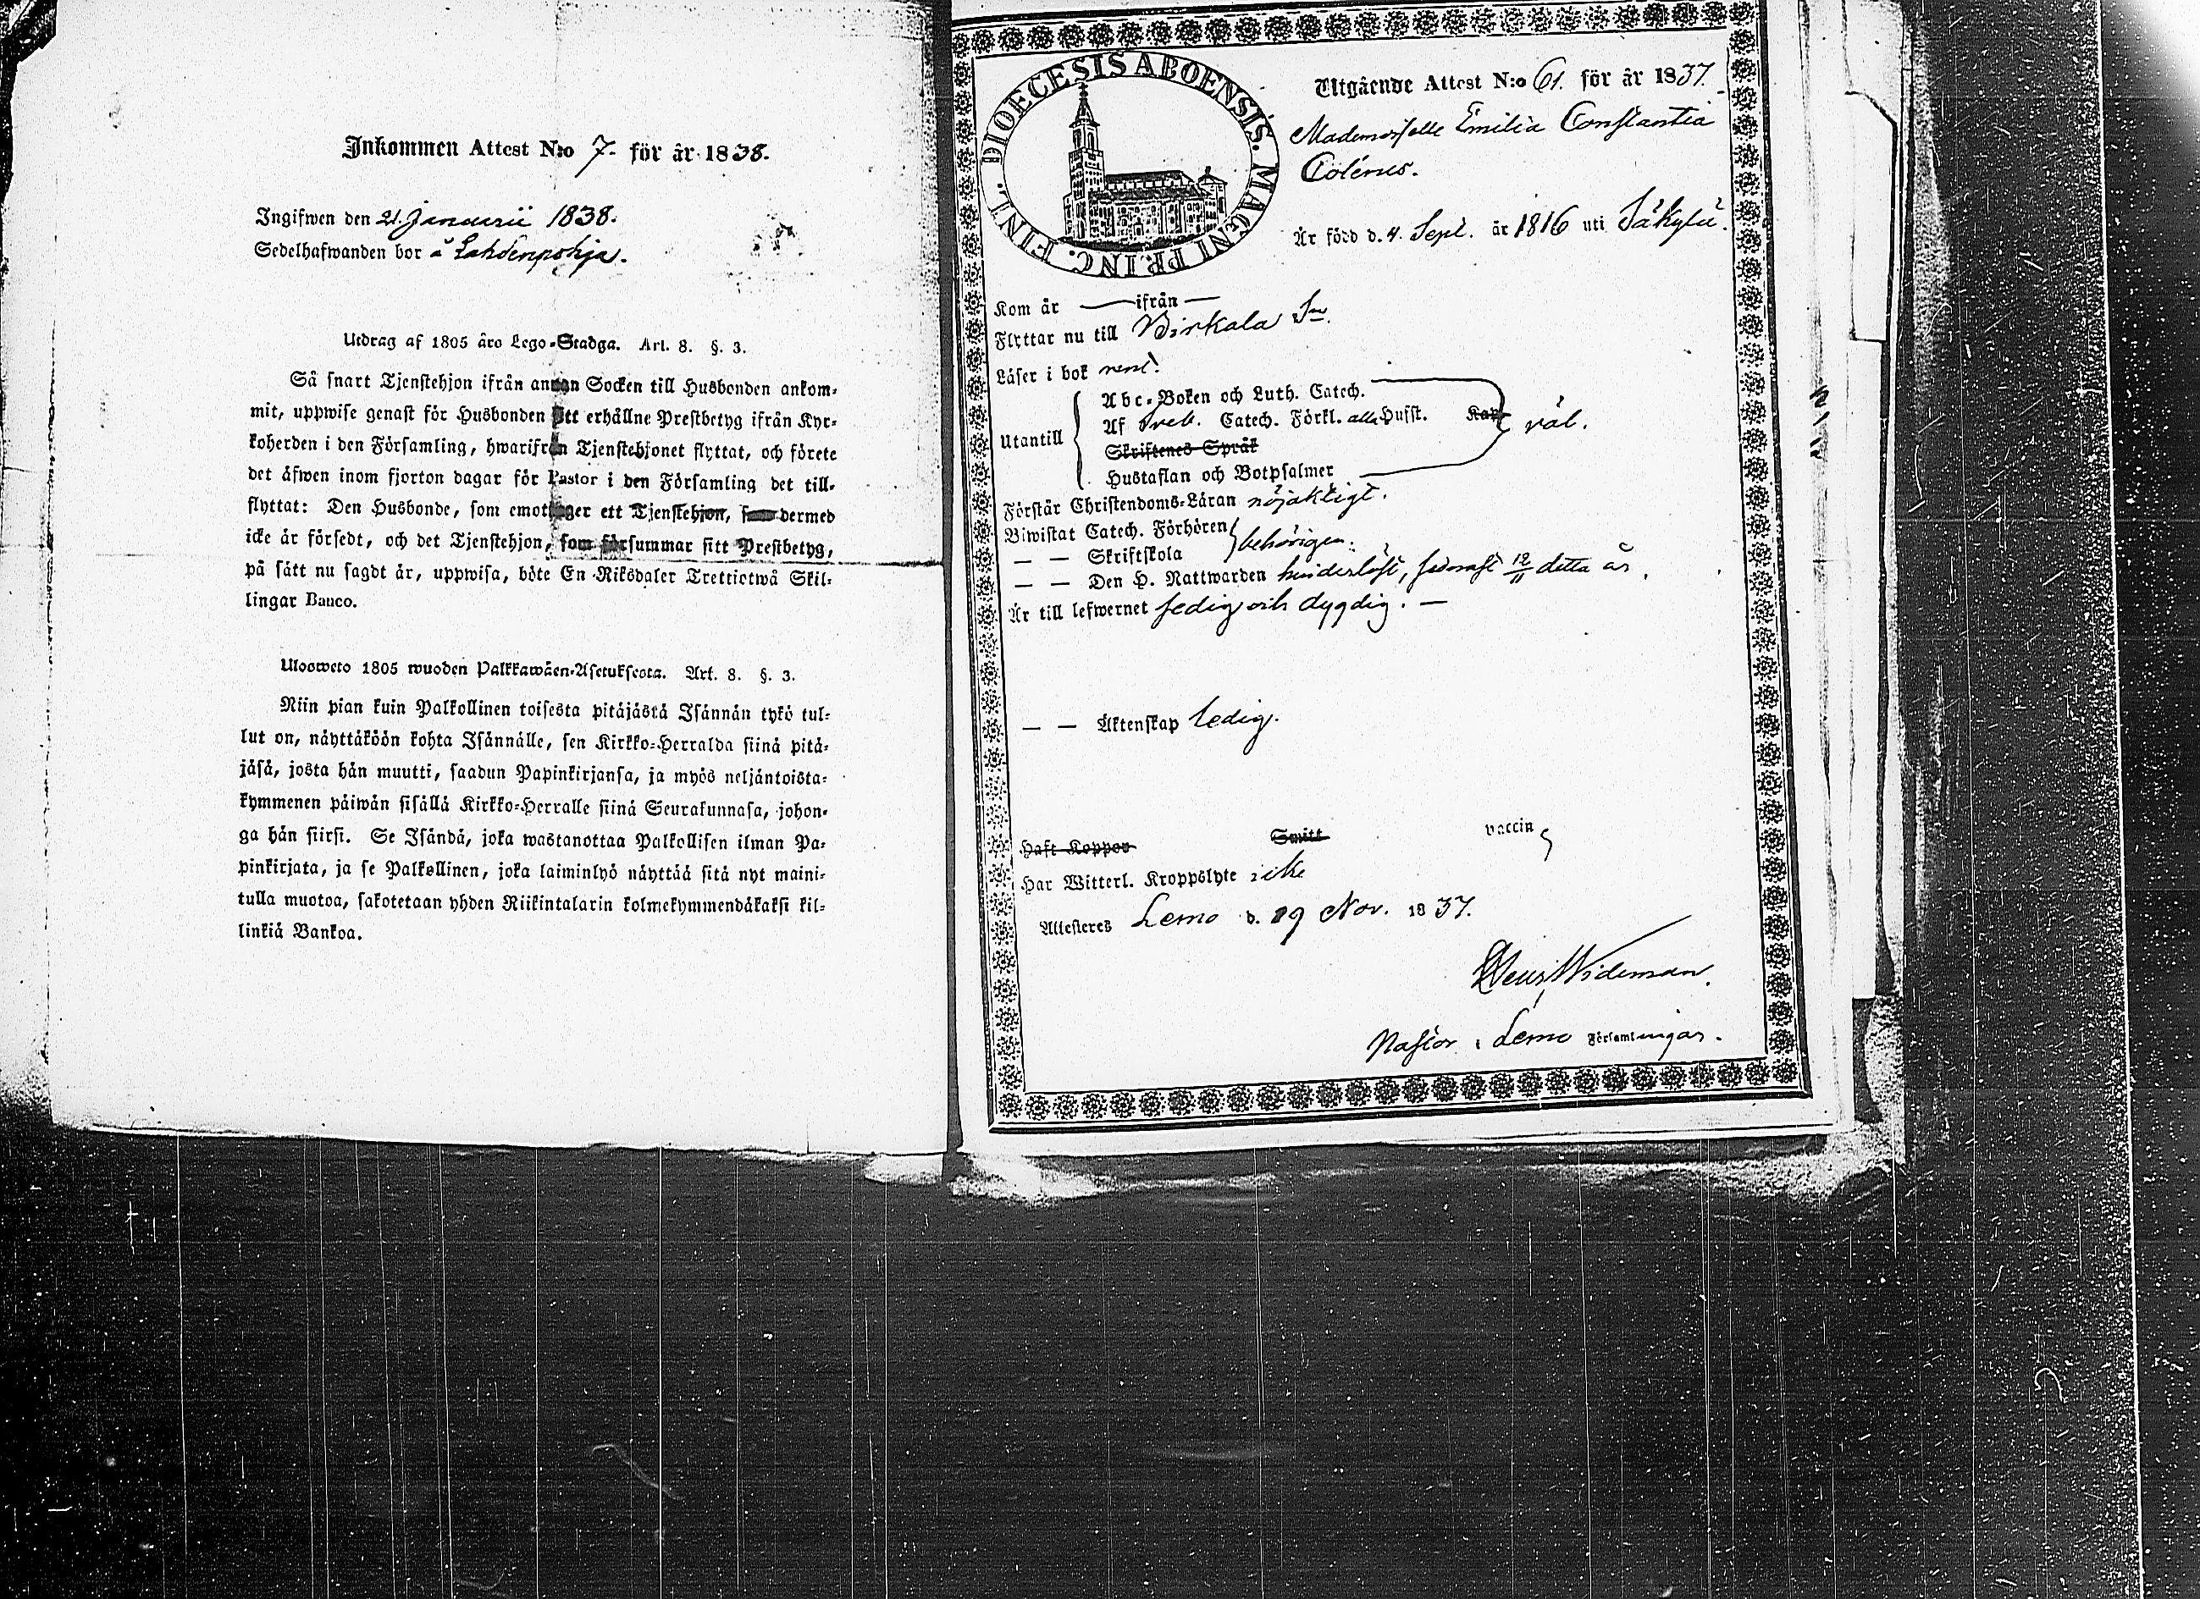 Inkommen Attest N:o 7. för år 1838.
Ingifwen den 21. Januarii 1838.
Sedelhafwanden bor å Lahdenpohja.
Utdrag af 1805 års Lego-Stadga. Art. 8. §. 3.
Så snart Tjenstehjon ifrån annan Socken till Husbonden ankom-
mit, uppwise genast för Husbonden sitt erhållne Prestbetyg ifrån Kyr-
koherden i den Församling, hwarifrån Tjenstehjonet flyttat, och förete
det äfwen inom fjorton dagar för Pastor i den Församling det till-
flyttat: Den Husbonde, som emottager ett Tjenstehjon, som dermed
icke är försedt, och det Tjenstehjon, som försummar sitt Prestbetyg,
på sätt nu sagdt är, uppwisa, böte En Riksdaler Trettiotwå Skil-
lingar Banco.
Ulosweto 1805 wuoden Palkkawäen-Asetuksesta. Art. 8. §. 3.
Niin pian kuin Palkollinen toisesta pitäjästä Isännän tykö tul-
lut on, näyttäköön kohta Isännälle, sen Kirkko-Herralda siinä pitä-
jäsä, josta hän muutti, saadun Papinkirjansa, ja myös neljäntoista-
kymmenen päiwän sisällä Kirkko-Herralle siinä Seurakunnasa, johon-
ga hän siirsi. Se Isändä, joka wastanottaa Palkollisen ilman Pa-
pinkirjata, ja se Palkollinen, joka laiminlyö näyttää sitä nyt maini-
tulla muotoa, sakotetaan yhden Riikintalarin kolmekymmendäkaksi kil-
linkiä Bankoa.
DIOECESIS ABOENSIS. MAGNI PRINC. FINL.
Utgående Attest N:o 61. för år 1837.
Mademoiselle Emilia Constantia
Colérus.
Är född d. 4. Sept. år 1816 uti Säkylä.
Kom år — ifrån —
Flyttar nu till Birkala Sn.
Läser i bok rent.
Utantill
Abc-Boken och Luth. Catech.
Af Sveb. Catech. Förkl. alla Hufst. Kap.
Skriftenes Språk
Hustaflan och Botpsalmer
väl.
Förstår Christendoms-Läran nöjaktigt.
Biwistat Catech. Förhören
— — Skriftskola behörigen.
— — Den H. Nattwarden hinderlöst, sednast 12/11 detta år.
Är till lefwernet sedig och dygdig. —
— — Äktenskap ledig.
Haft Koppor Smitt vaccin
Har Witterl. Kroppslyte icke
Attesteres Lemo d. 29 Nov. 1837.
Wideman.
Pastor i Lemo Församlingar.